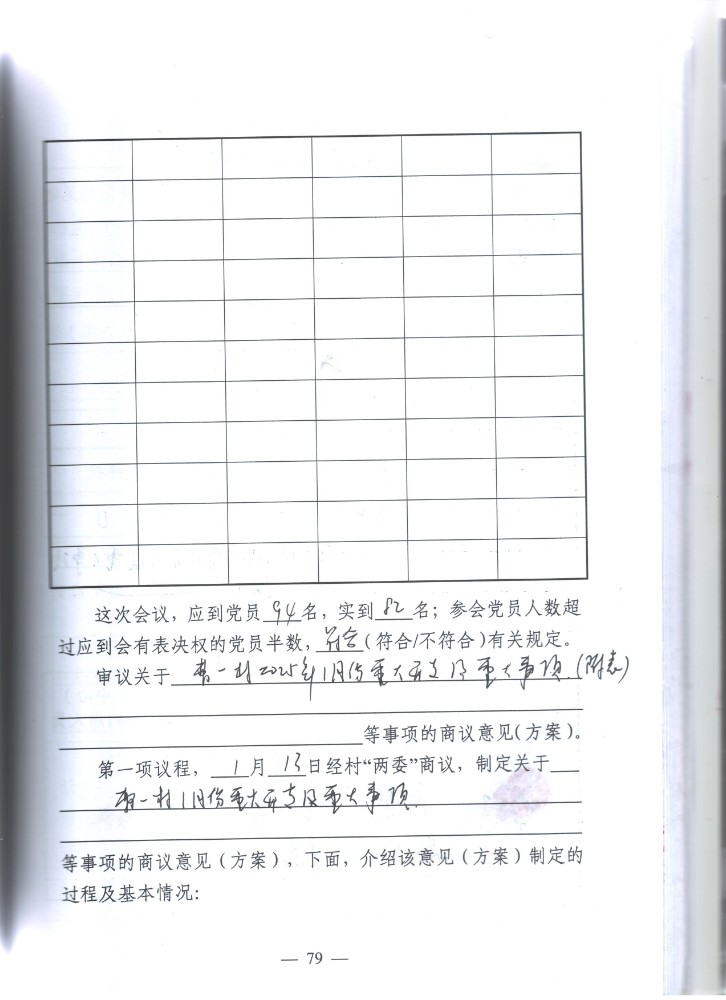 这次会议，应到党员 94 名，实到 82 名；参会党员人数超
过应到会有表决权的党员半数，符合(符合/不符合)有关规定。
审议关于 一村2025年1月份重大开支及重大事项.(附表)
等事项的商议意见(方案)。
第一项议程， 1 月 13 日经村“两委”商议，制定关于
一村1月份重大开支及重大事项.
等事项的商议意见(方案)，下面，介绍该意见(方案)制定的
过程及基本情况：
— 79 —